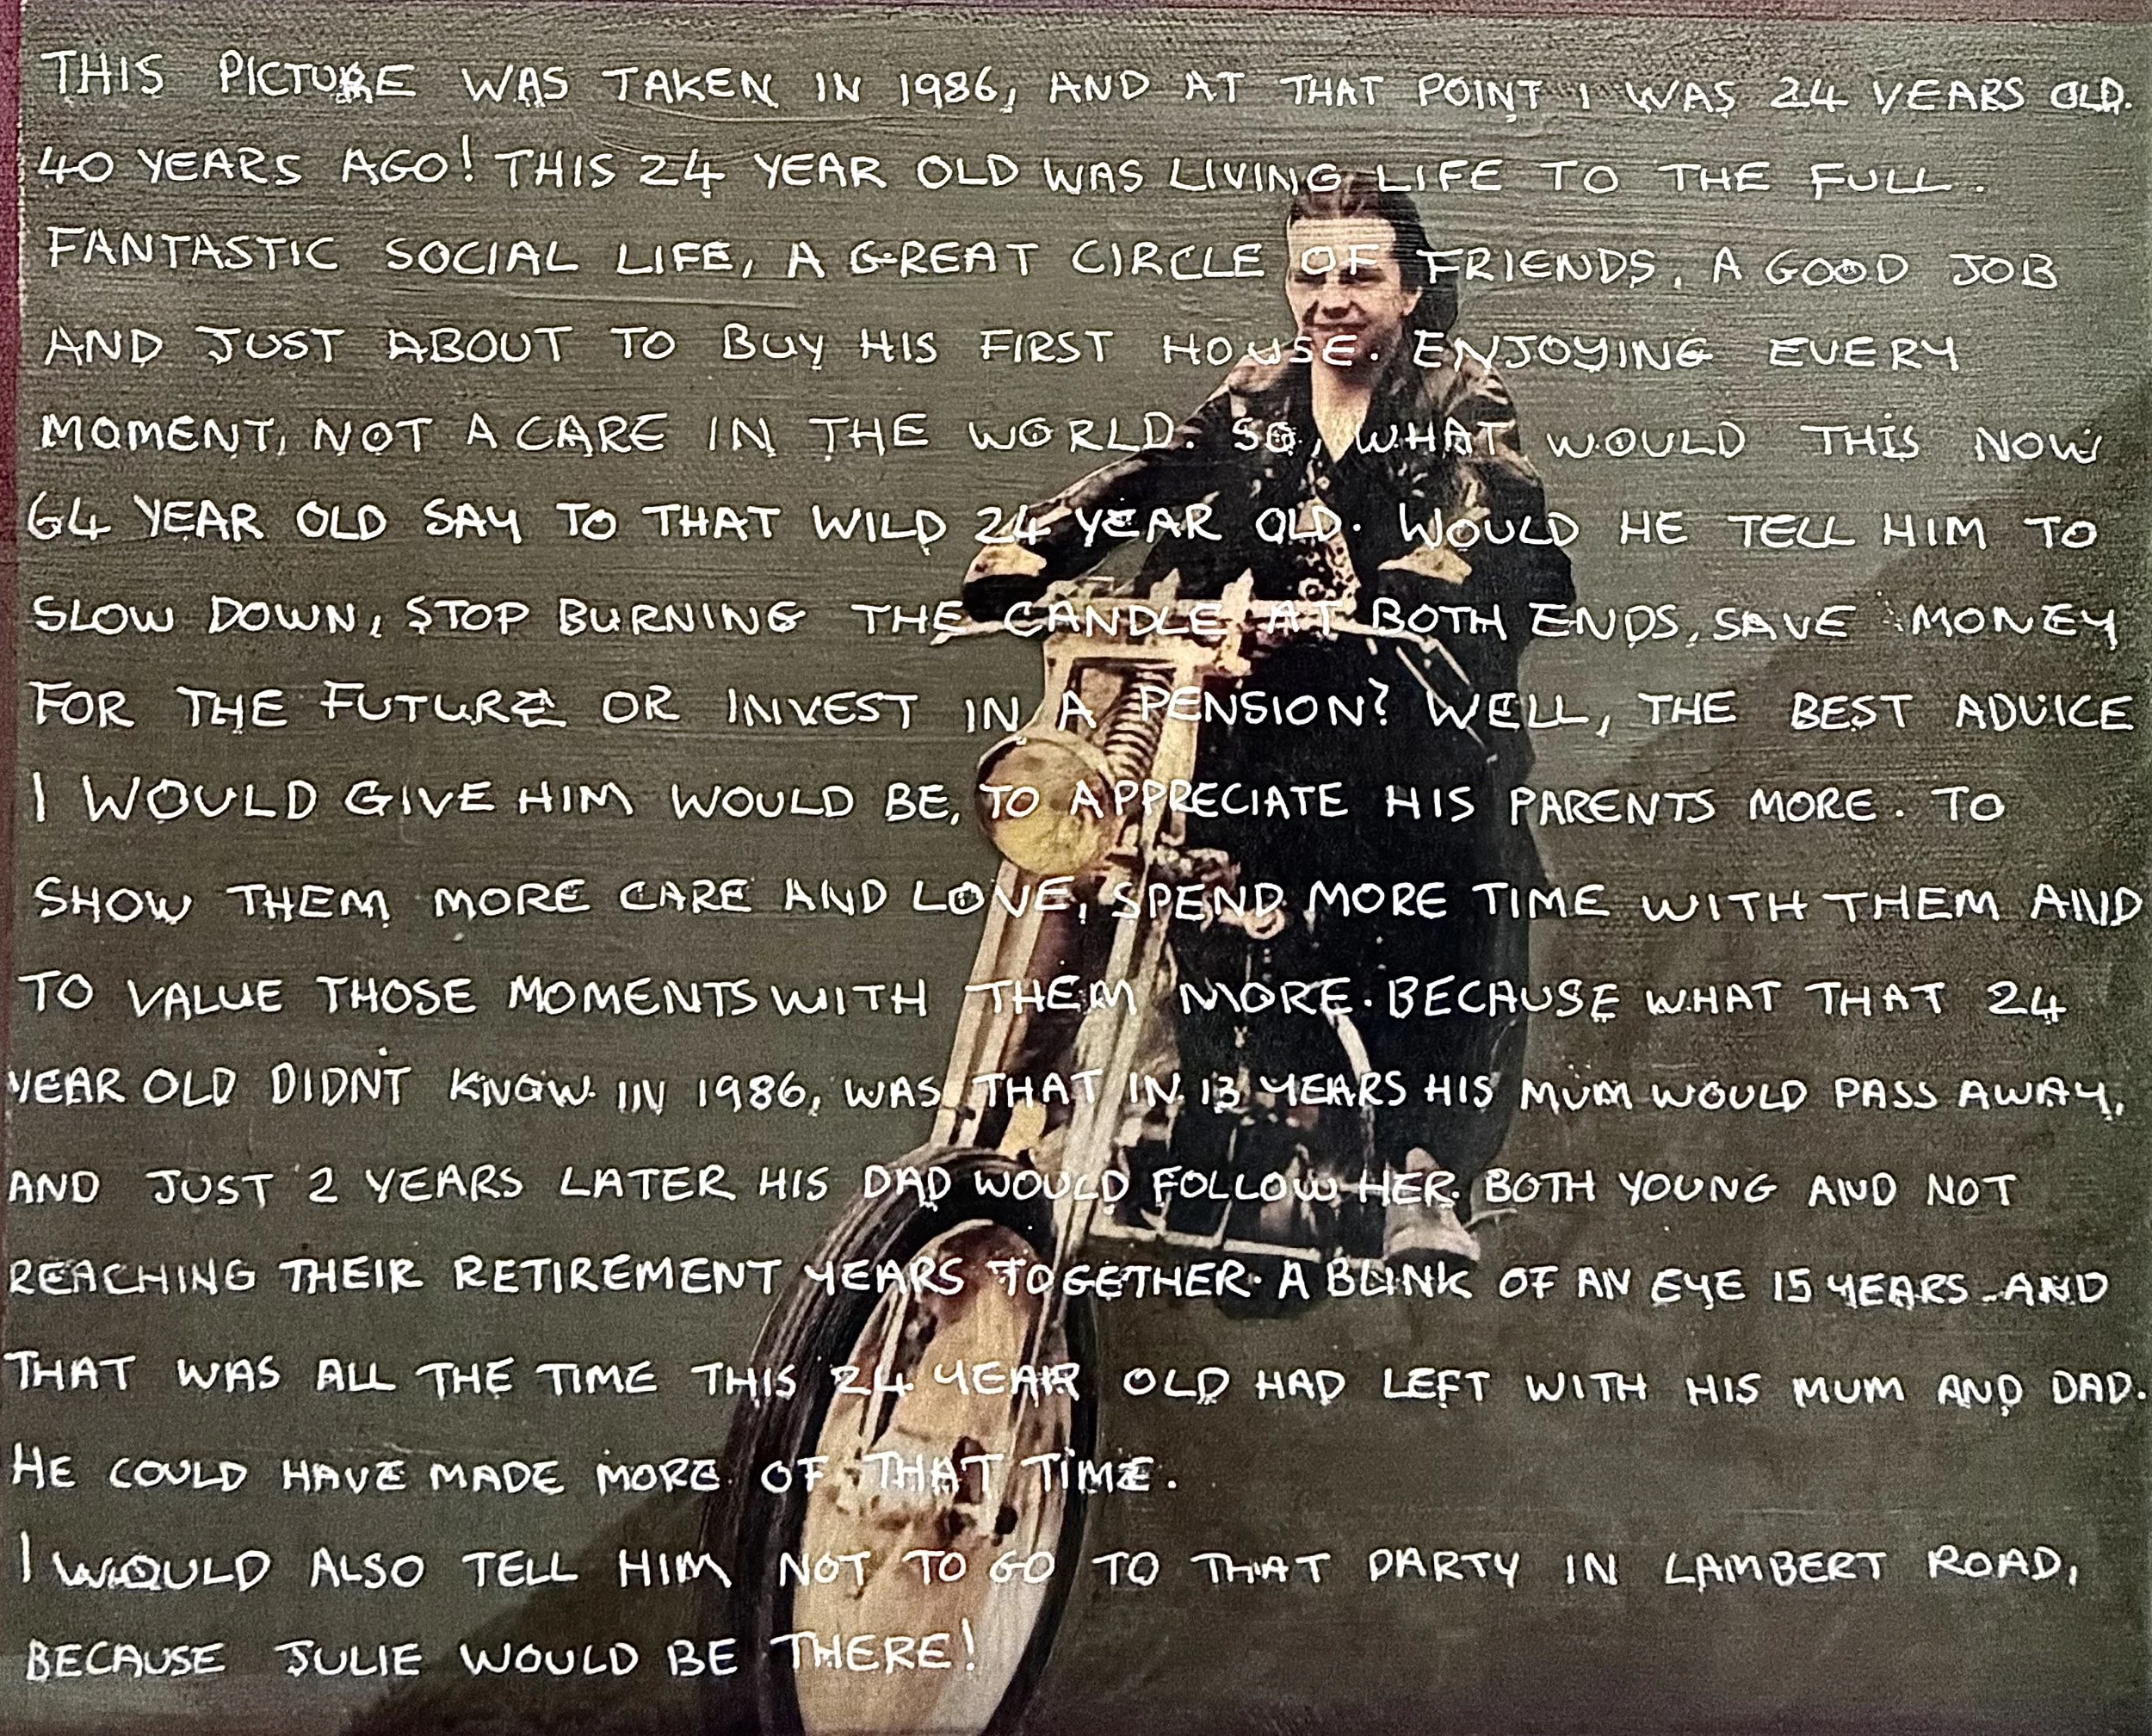 THIS PICTURE WAS TAKEN IN 1986, AND AT THAT POINT I WAS 24 YEARS OLD.
40 YEARS AGO! THIS 24 YEAR OLD WAS LIVING LIFE TO THE FULL.
FANTASTIC SOCIAL LIFE, A GREAT CIRCLE OF FRIENDS, A GOOD JOB
AND JUST ABOUT TO BUY HIS FIRST HOUSE. ENJOYING EVERY
MOMENT, NOT A CARE IN THE WORLD. SO, WHAT WOULD THIS NOW
64 YEAR OLD SAY TO THAT WILD 24 YEAR OLD. WOULD HE TELL HIM TO
SLOW DOWN, STOP BURNING THE CANDLE AT BOTH ENDS, SAVE MONEY
FOR THE FUTURE OR INVEST IN A PENSION? WELL, THE BEST ADVICE
I WOULD GIVE HIM WOULD BE, TO APPRECIATE HIS PARENTS MORE. TO
SHOW THEM MORE CARE AND LOVE, SPEND MORE TIME WITH THEM AND
TO VALUE THOSE MOMENTS WITH THEM MORE. BECAUSE WHAT THAT 24
YEAR OLD DIDN'T KNOW IN 1986, WAS THAT IN 13 YEARS HIS MUM WOULD PASS AWAY,
AND JUST 2 YEARS LATER HIS DAD WOULD FOLLOW HER. BOTH YOUNG AND NOT
REACHING THEIR RETIREMENT YEARS TOGETHER. A BLINK OF AN EYE 15 YEARS AND
THAT WAS ALL THE TIME THIS 24 YEAR OLD HAD LEFT WITH HIS MUM AND DAD.
HE COULD HAVE MADE MORE OF THAT TIME.
I WOULD ALSO TELL HIM NOT TO GO TO THAT PARTY IN LAMBERT ROAD,
BECAUSE JULIE WOULD BE THERE!